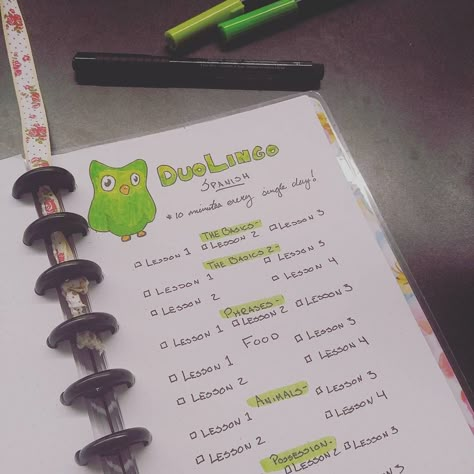 DuoLingo
Spanish
* 10 minutes every single day!
The Basics-
Lesson 1 Lesson 2 Lesson 3
The Basics 2-
Lesson 1 Lesson 3
Lesson 2 Lesson 4
Phrases-
Lesson 1 Lesson 2 Lesson 3
Food
Lesson 1 Lesson 3
Lesson 2 Lesson 4
Animals-
Lesson 1 Lesson 3
Lesson 2 Lesson 4
Possession-
Lesson 2 Lesson 3